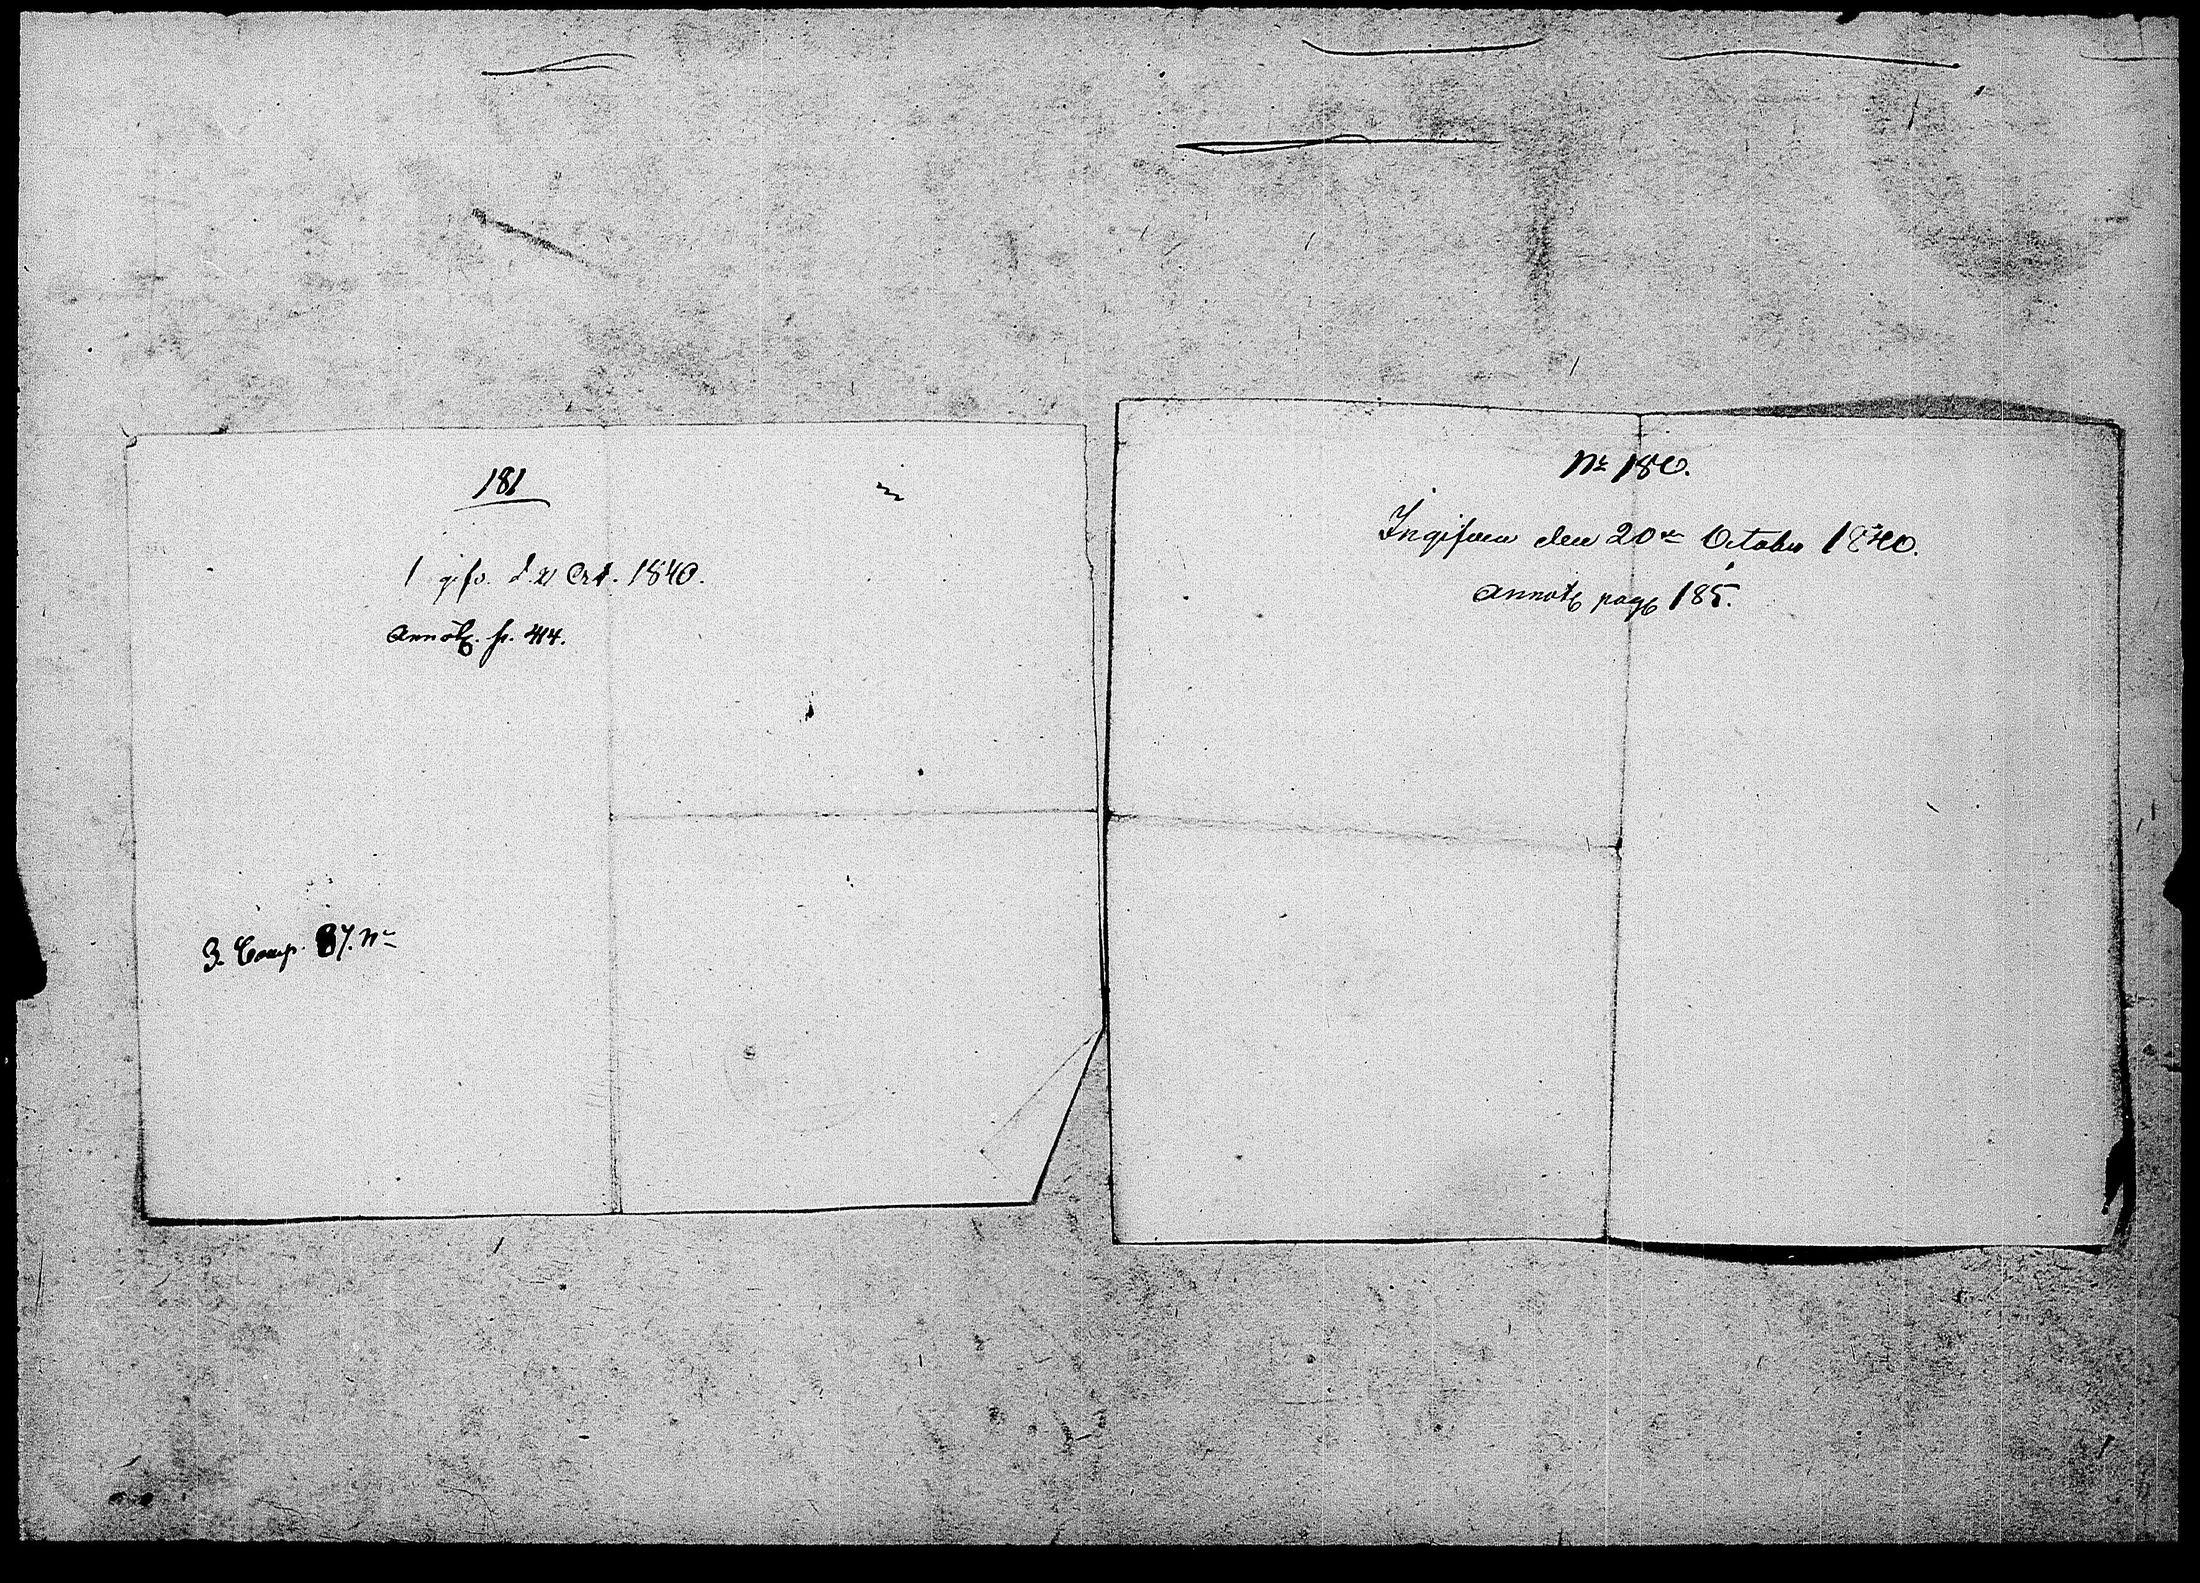 181
1 gifv. d. 21 Oct. 1840.
Annot. p. 414.
3. Comp. 87. Nr
Nr 180.
Ingifven den 20de October 1840.
Annot. pag. 185.